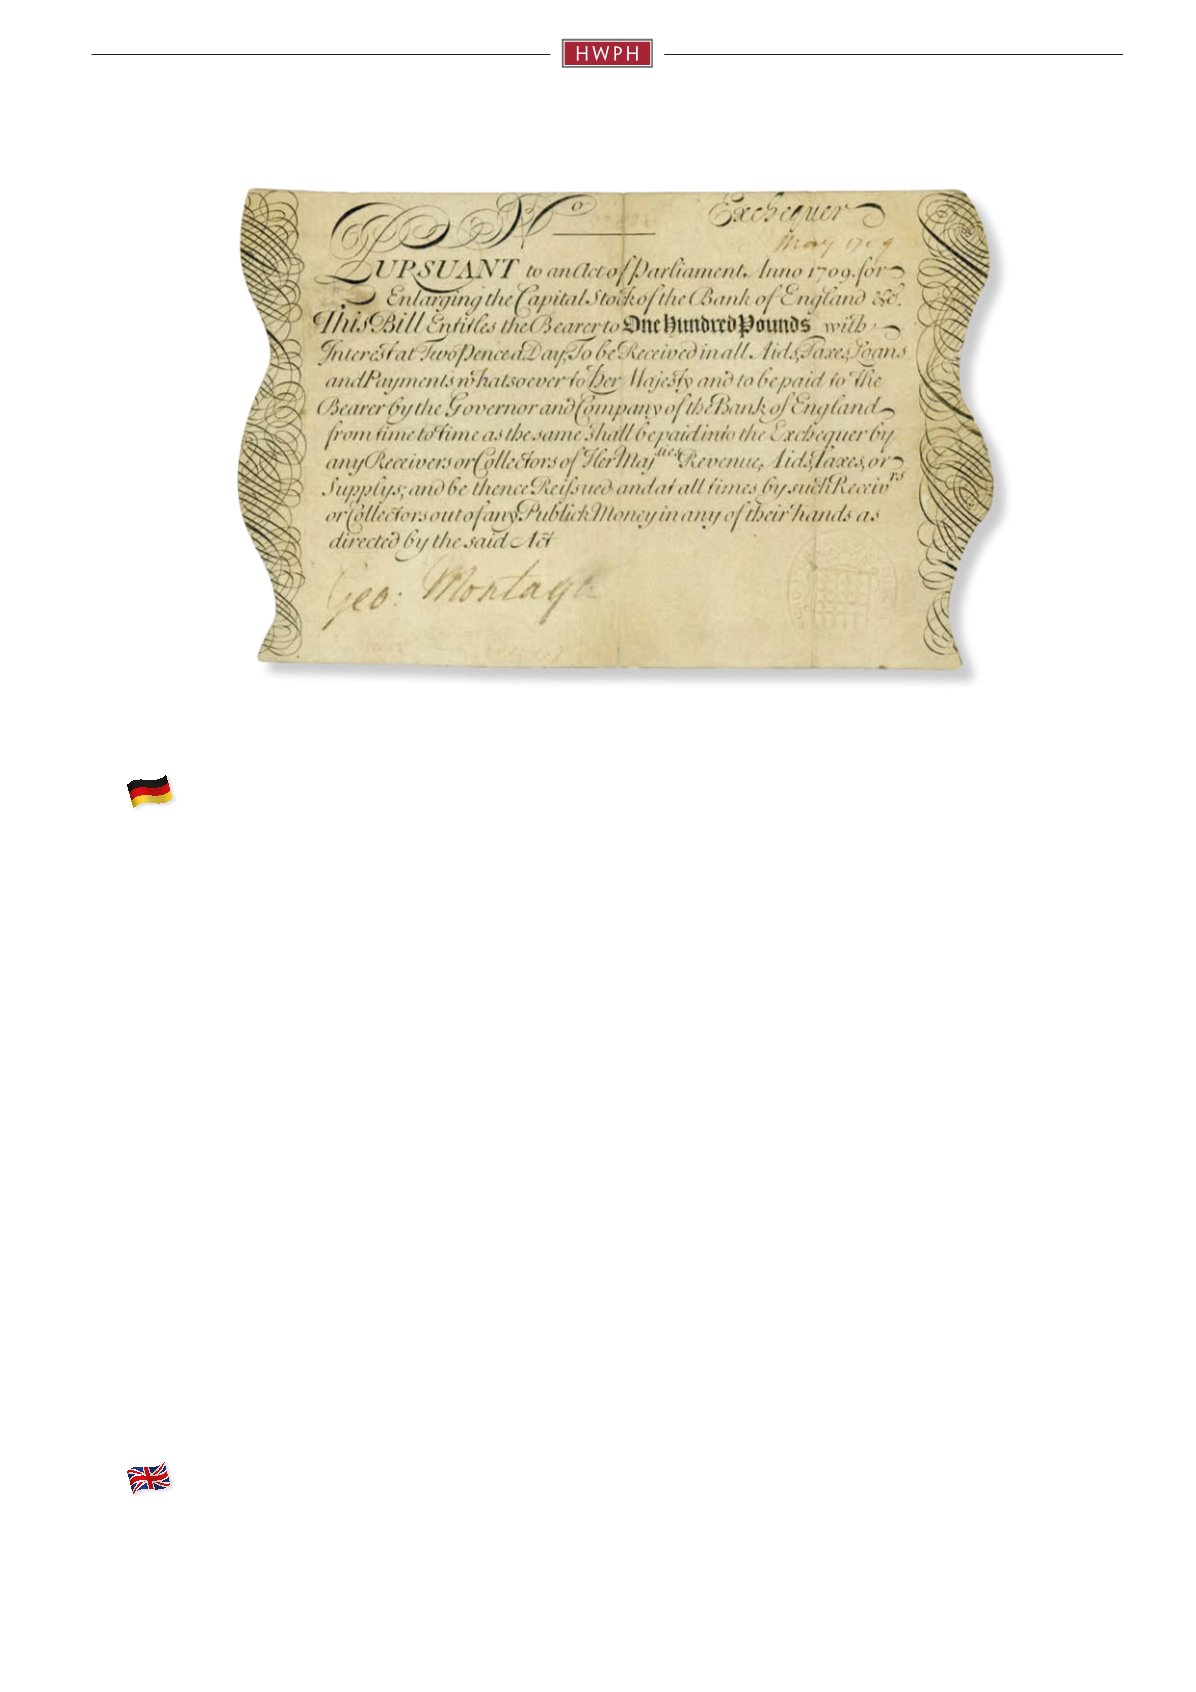 HWPH
No Exchequer
May 1709
PURSUANT to an Act of Parliament Anno 1709. for
Enlarging the Capital Stock of the Bank of England &c.
This Bill Entitles the Bearer to One Hundred Pounds with
Interest at Two Pence a Day, To be Received in all Aids, Taxes, Loans
and Payments whatsoever to Her Majesty and to be paid to the
Bearer by the Governor and Company of the Bank of England
from time to time as the same shall be paid into the Exchequer by
any Receivers or Collectors of Her Maj.ties Revenue, Aids, Taxes, or
Supplys; and be thence Reissued and at all times by such Receiv.rs
or Collectors out of any Publick Money in any of their hands as
directed by the said Act
Geo: Montagu